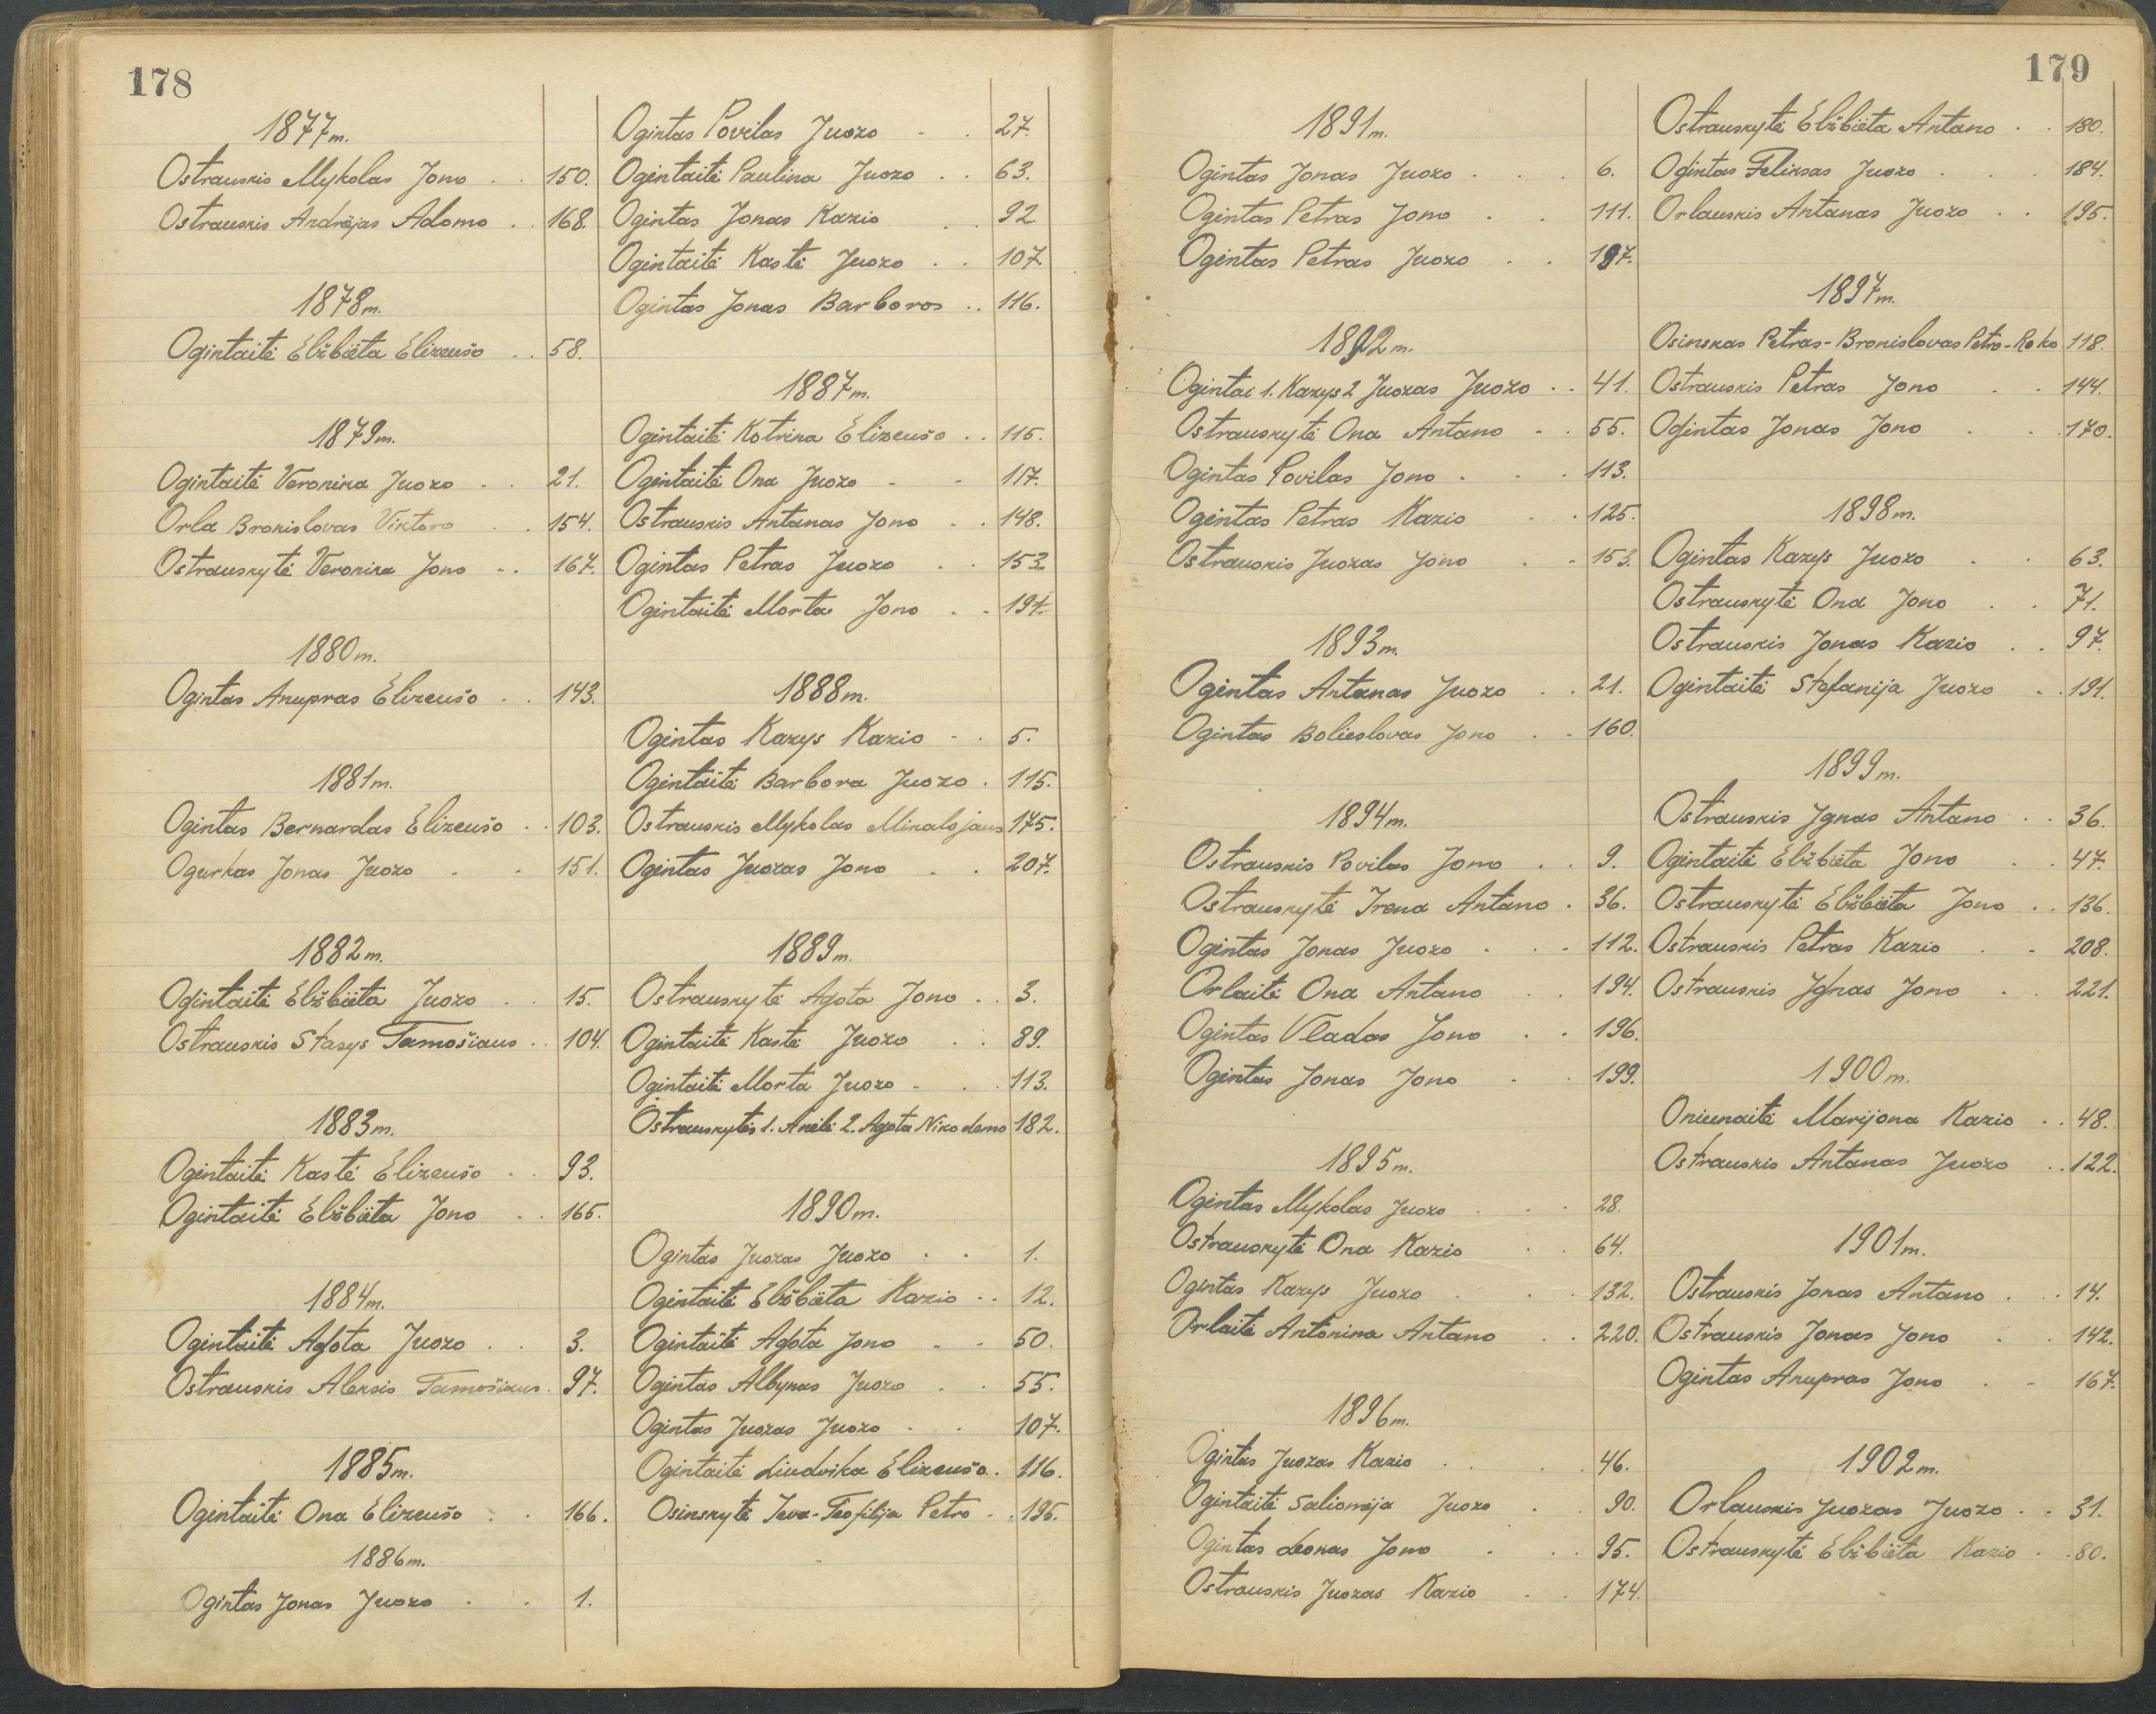 178
1877m.
Ostrauskis Mykolas Jono . . 150.
Ostrauskis Andrėjas Adomo . 168.
1878m.
Ogintaitė Elžbiėta Elizeušo . . 58.
1879m.
Ogintaitė Veronika Juozo - . 21.
Orla Bronislovas Viktoro . . 154.
Ostrauskytė Veronika Jono - . 167.
1880m.
Ogintas Anupras Elizeušo . . 143.
1881m.
Ogintas Bernardas Elizeušo . . 103.
Ogurkas Jonas Juozo . . 151.
1882m.
Ogintaitė Elžbiėta Juozo . . 15.
Ostrauskis Stasys Tamošiaus . . 104.
1883m.
Ogintaitė Kastė Elizeušo . . 93.
Ogintaitė Elžbiėta Jono . . 165.
1884m.
Ogintaitė Agota Juozo . . 3.
Ostrauskis Aleksis Tamošiaus . 97.
1885m.
Ogintaitė Ona Elizeušo . . 166.
1886m.
Ogintas Jonas Juozo . . 1.
Ogintas Povilas Juozo - . 27.
Ogintaitė Paulina Juozo . . 63.
Ogintas Jonas Kazio . . 92
Ogintaitė Kastė Juozo . . 107.
Ogintas Jonas Barboros . . 116.
1887m.
Ogintaitė Kotrina Elizeušo . . 115.
Ogintaitė Ona Juozo - - 117.
Ostrauskis Antanas Jono - . 148.
Ogintas Petras Juozo . . 153
Ogintaitė Morta Jono . . 197.
1888m.
Ogintas Kazys Kazio - . 5.
Ogintaitė Barbora Juozo . 115.
Ostrauskis Mykolas Mikalojaus 175.
Ogintas Juozas Jono . . 207.
1889m.
Ostrauskytė Agota Jono . . 3.
Ogintaitė Kastė Juozo . . 89.
Ogintaitė Morta Juozo - . . 113.
Ostrauskytės 1. Anelė 2. Agota Nikodemo 182.
1890m.
Ogintas Juozas Juozo . . 1.
Ogintaitė Elžbiėta Kazio . . 12.
Ogintaitė Agota Jono - - 50.
Ogintas Albynas Juozo . . 55.
Ogintas Juozas Juozo . . 107.
Ogintaitė Liudvika Elizeušo . 116.
Osinskytė Ieva-Teofilija Petro - . 195.
179
1891m.
Ogintas Jonas Juozo . . . 6.
Ogintas Petras Jono . . 111.
Ogintas Petras Juozo . . 197.
1892m.
Ogintai 1. Kazys 2 Juozas Juozo . . 41.
Ostrauskytė Ona Antano - . 55.
Ogintas Povilas Jono . . . 113.
Ogintas Petras Kazio . . 125.
Ostrauskis Juozas Jono . . 153.
1893m.
Ogintas Antanas Juozo . . 21.
Ogintas Bolieslovas Jono . . 160.
1894m.
Ostrauskis Povilas Jono . . 9.
Ostrauskytė Irena Antano . 36.
Ogintas Jonas Juozo . . . 112.
Orlaitė Ona Antano . . 194.
Ogintas Vladas Jono . . 196.
Ogintas Jonas Jono . . 199.
1895m.
Ogintas Mykolas Juozo . . . 28.
Ostrauskytė Ona Kazio . . 64.
Ogintas Kazys Juozo . . . 132.
Orlaitė Antonina Antano . . 220.
1896m.
Ogintas Juozas Kazio . . . 46.
Ogintaitė Saliomėja Juozo . . 90.
Ogintas Leonas Jono . . . 95.
Ostrauskis Juozas Kazio . . 174.
Ostrauskytė Elžbiėta Antano . . 180.
Ogintas Feliksas Juozo . . . 184.
Orlauskis Antanas Juozo . . 195.
1897m.
Osinskas Petras-Bronislovas Petro-Roko 118.
Ostrauskis Petras Jono . . 144.
Ogintas Jonas Jono . . . 170.
1898m.
Ogintas Kazys Juozo . . 63.
Ostrauskytė Ona Jono . . 71.
Ostrauskis Jonas Kazio . . 97.
Ogintaitė Stefanija Juozo . . 191.
1899m.
Ostrauskis Ignas Antano . . 36.
Ogintaitė Elžbiėta Jono . . 47.
Ostrauskytė Elžbiėta Jono . . 136.
Ostrauskis Petras Kazio . - 208.
Ostrauskis Ignas Jono . . 221.
1900m.
Oniūnaitė Marijona Kazio . . 48.
Ostrauskis Antanas Juozo . . 122.
1901m.
Ostrauskis Jonas Antano . . . 14.
Ostrauskis Jonas Jono . . 142.
Ogintas Anupras Jono . - 167.
1902m.
Orlauskis Juozas Juozo . . 31.
Ostrauskytė Elžbiėta Kazio . . 80.